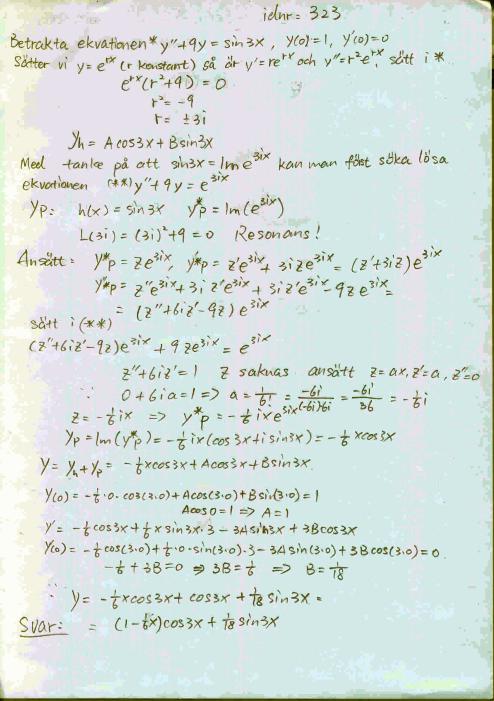 idnr: 323
Betrakta ekvationen * y''+9y = sin3x , y(0)=1, y'(0)=0
Sätter vi y=e^{rx} (r konstant) så är y'=re^{rx} och y''=r²e^{rx}, sätt i *
e^{rx}(r²+9) = 0
r² = -9
r = ±3i
y_h = Acos3x + Bsin3x
Med tanke på att sin3x = Im e^{3ix} kan man först söka lösa
ekvationen (**) y''+9y = e^{3ix}
y_p: h(x) = sin3x y*_p = Im(e^{3ix})
L(3i) = (3i)²+9 = 0 Resonans!
Ansätt: y*_p = ze^{3ix}, y*'_p = z'e^{3ix} + 3ize^{3ix} = (z'+3iz)e^{3ix}
y*''_p = z''e^{3ix} + 3iz'e^{3ix} + 3iz'e^{3ix} - 9ze^{3ix} =
= (z''+6iz'-9z)e^{3ix}
sätt i (**)
(z''+6iz'-9z)e^{3ix} + 9ze^{3ix} = e^{3ix}
z''+6iz' = 1 z saknas ansätt z=ax, z'=a, z''=0
∵ 0+6ia=1 => a = 1/6i = -6i/(-6i)6i = -6i/36 = -1/6 i
z = -1/6 ix => y*_p = -1/6 ixe^{3ix}
y_p = Im(y*_p) = -1/6 ix(cos3x+isin3x) = -1/6 xcos3x
y = y_h + y_p = -1/6 xcos3x + Acos3x + Bsin3x
y(0) = -1/6·0·cos(3·0) + Acos(3·0) + Bsin(3·0) = 1
Acos0=1 => A=1
y' = -1/6 cos3x + 1/6 xsin3x·3 - 3Asin3x + 3Bcos3x
y(0) = -1/6 cos(3·0) + 1/6·0·sin(3·0)·3 - 3Asin(3·0) + 3Bcos(3·0) = 0
-1/6 + 3B = 0 => 3B = 1/6 => B = 1/18
∴ y = -1/6 xcos3x + cos3x + 1/18 sin3x =
Svar: = (1-1/6 x)cos3x + 1/18 sin3x